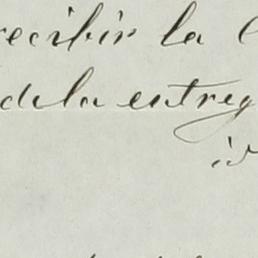 recibir la
de la entreg